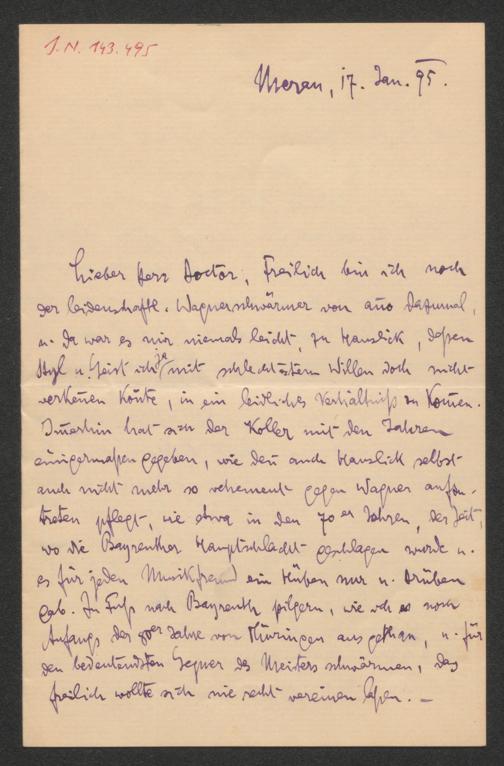 I.N. 143.495
Meran, 17. Jan. 95.
Lieber Herr Doctor, Freilich bin ich noch
der leidenschaftl. Wagnerschwärmer von anno dazumal,
u. da war es mir niemals leicht, zu Hanslick, dessen
Styl u. Geist ich ja mit schlechtestem Willen doch nicht
verkennen konnte, in ein leidliches Verhältniß zu kommen.
Immerhin hat sich der Koller mit den Jahren
einigermaßen gegeben, wie denn auch Hanslick selbst
auch nicht mehr so vehement gegen Wagner aufzu-
treten pflegt, wie etwa in den 70er Jahren, der Zeit,
wo die Bayreuther Hauptschlacht geschlagen wurde u.
es für jeden Musikfreund ein Hüben nur u. Drüben
gab. Zu Fuß nach Bayreuth pilgern, wie ich es noch
Anfangs der 80er Jahre von Thüringen aus gethan, u. für
den bedeutendsten Gegner des Meisters schwärmen, das
freilich wollte sich nie recht vereinen lassen. —